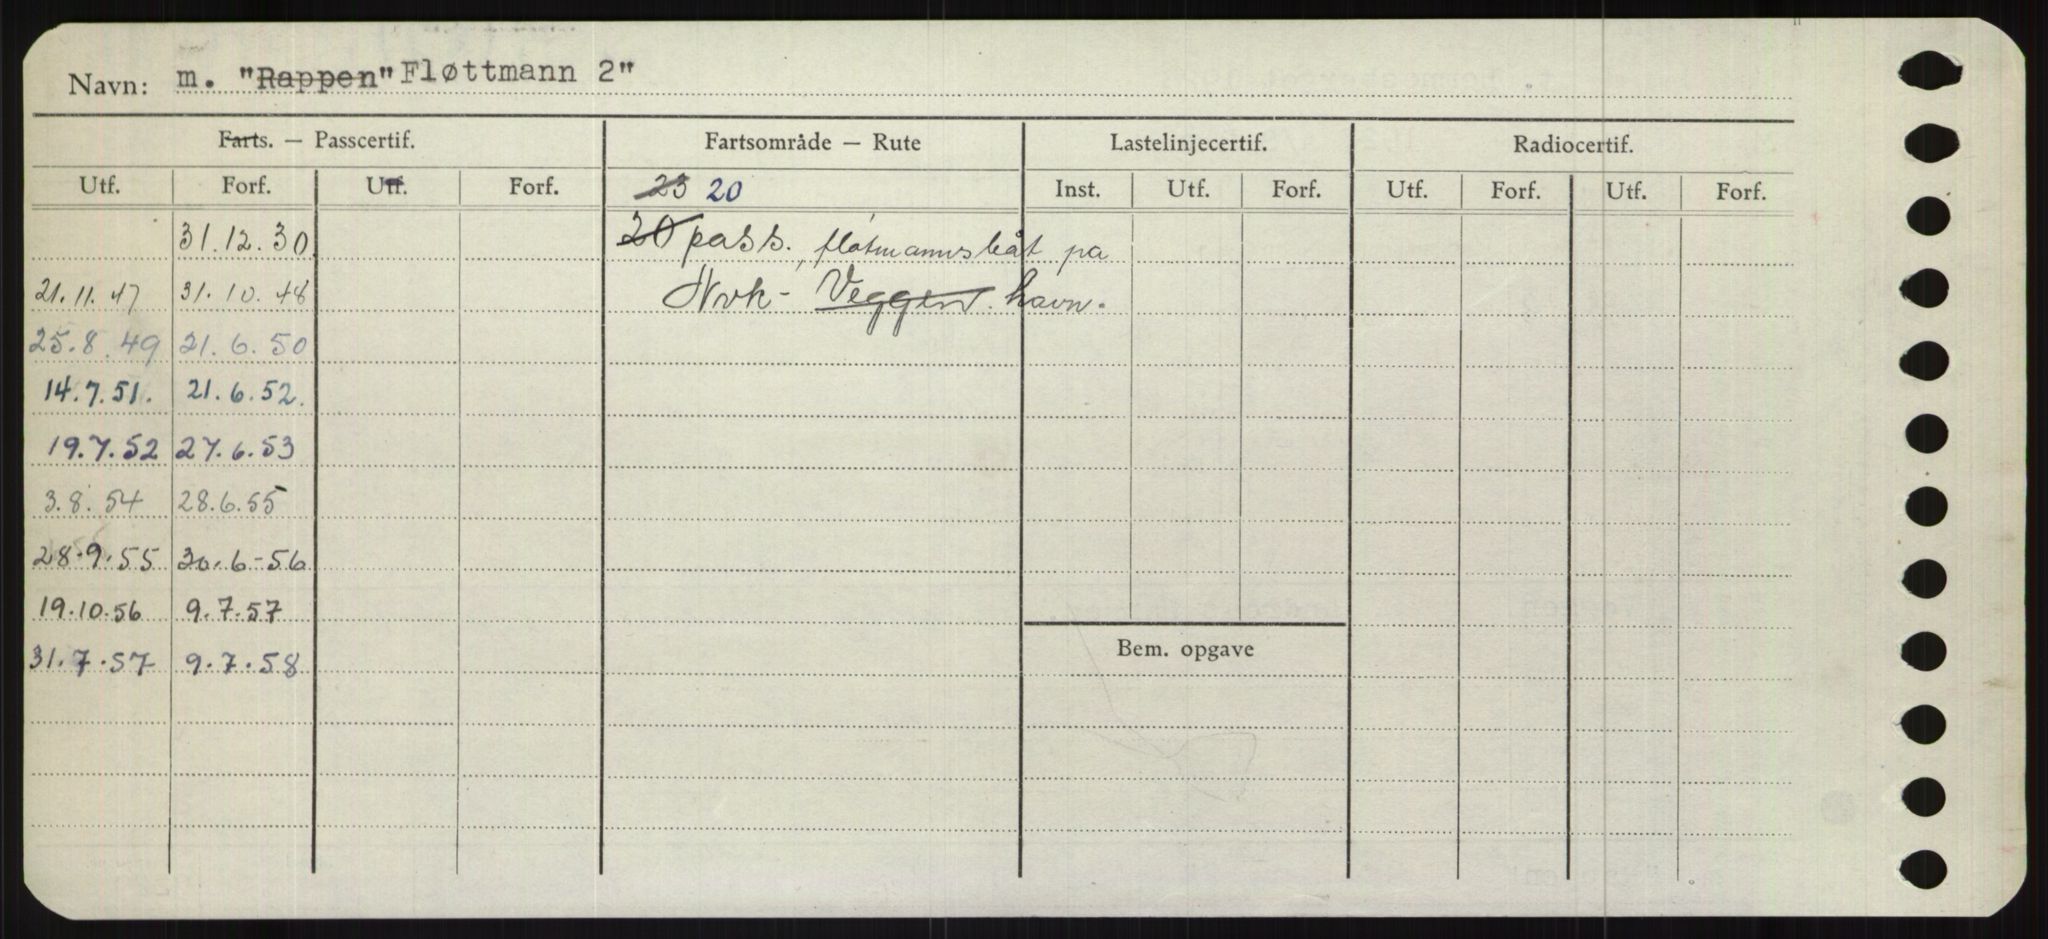 Navn: m. "Rappen" Fløttmann 2"
Farts. — Passcertif. Fartsområde — Rute Lastelinjecertif. Radiocertif.
Utf. Forf. Utf. Forf. 23 20 Inst. Utf. Forf. Utf. Forf. Utf. Forf.
31.12.30 20 pass., fløtmannsbåt på
21.11.47 31.10.48 Nvk- Veggen. havn.
25.8.49 21.6.50
14.7.51. 21.6.52.
19.7.52 27.6.53
3.8.54 28.6.55
28.9.55 30.6-56
19.10.56 9.7.57
Bem. opgave
31.7.57 9.7.58